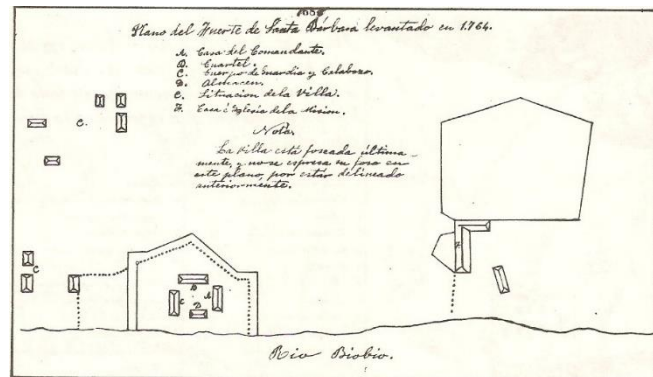 Plano del Fuerte de Santa Bárbara levantado en 1.764.
A. Casa del Comandante.
B. Cuartel.
C. Cuerpo de Guardia y Calabozo.
D. Almacen.
E. Situacion de la Villa.
F. Casa é Iglesia de la Mision.
Nota.
La villa está foseada última-
mente, y no se espresa su foso en
este plano, por estar delineado
anteriormente.
C.
F
C
B
C
A
D
Rio Biobio.